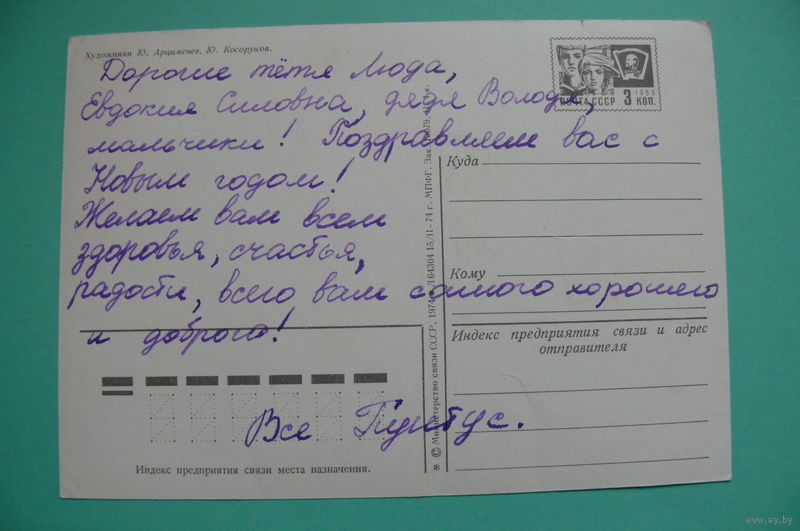 Художники Ю. Арцименев, Ю. Косоруков.
Дорогие тётя Люда,
Евдокия Силовна, дядя Володя,
мальчики! Поздравляем вас с
Новым годом!
Желаем вам всем
здоровья, счастья,
радости, всего вам самого хорошего
и доброго!
Все
ПОЧТА СССР 3 КОП.
1966
Куда
Кому
Индекс предприятия связи и адрес
отправителя
Индекс предприятия связи места назначения.
* © Министерство связи СССР, 1974 15/II-74 г. МПФГ. Зак.
www.ay.by